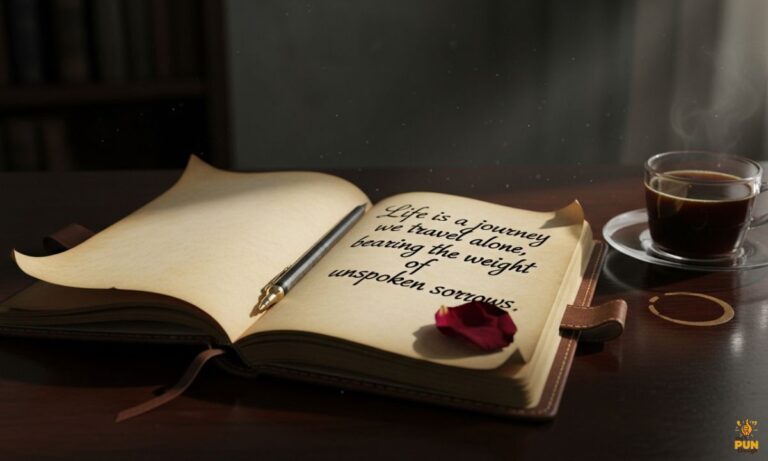 Life is a journey
we travel alone,
bearing the weight
of
unspoken sorrows.
PUN